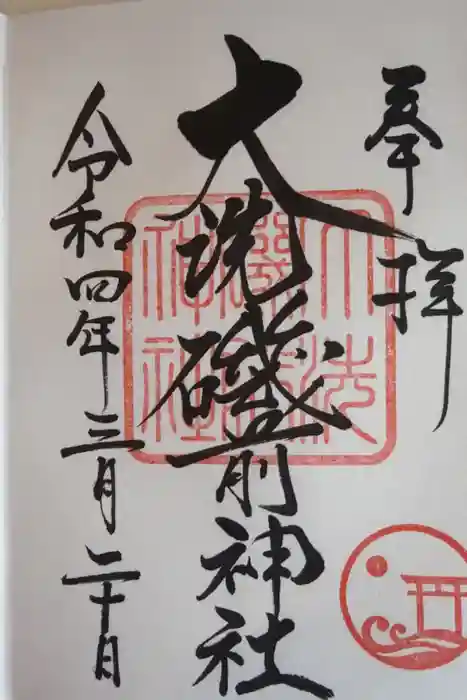 奉拝
大洗磯前神社
令和四年三月二十日
大洗磯前神社